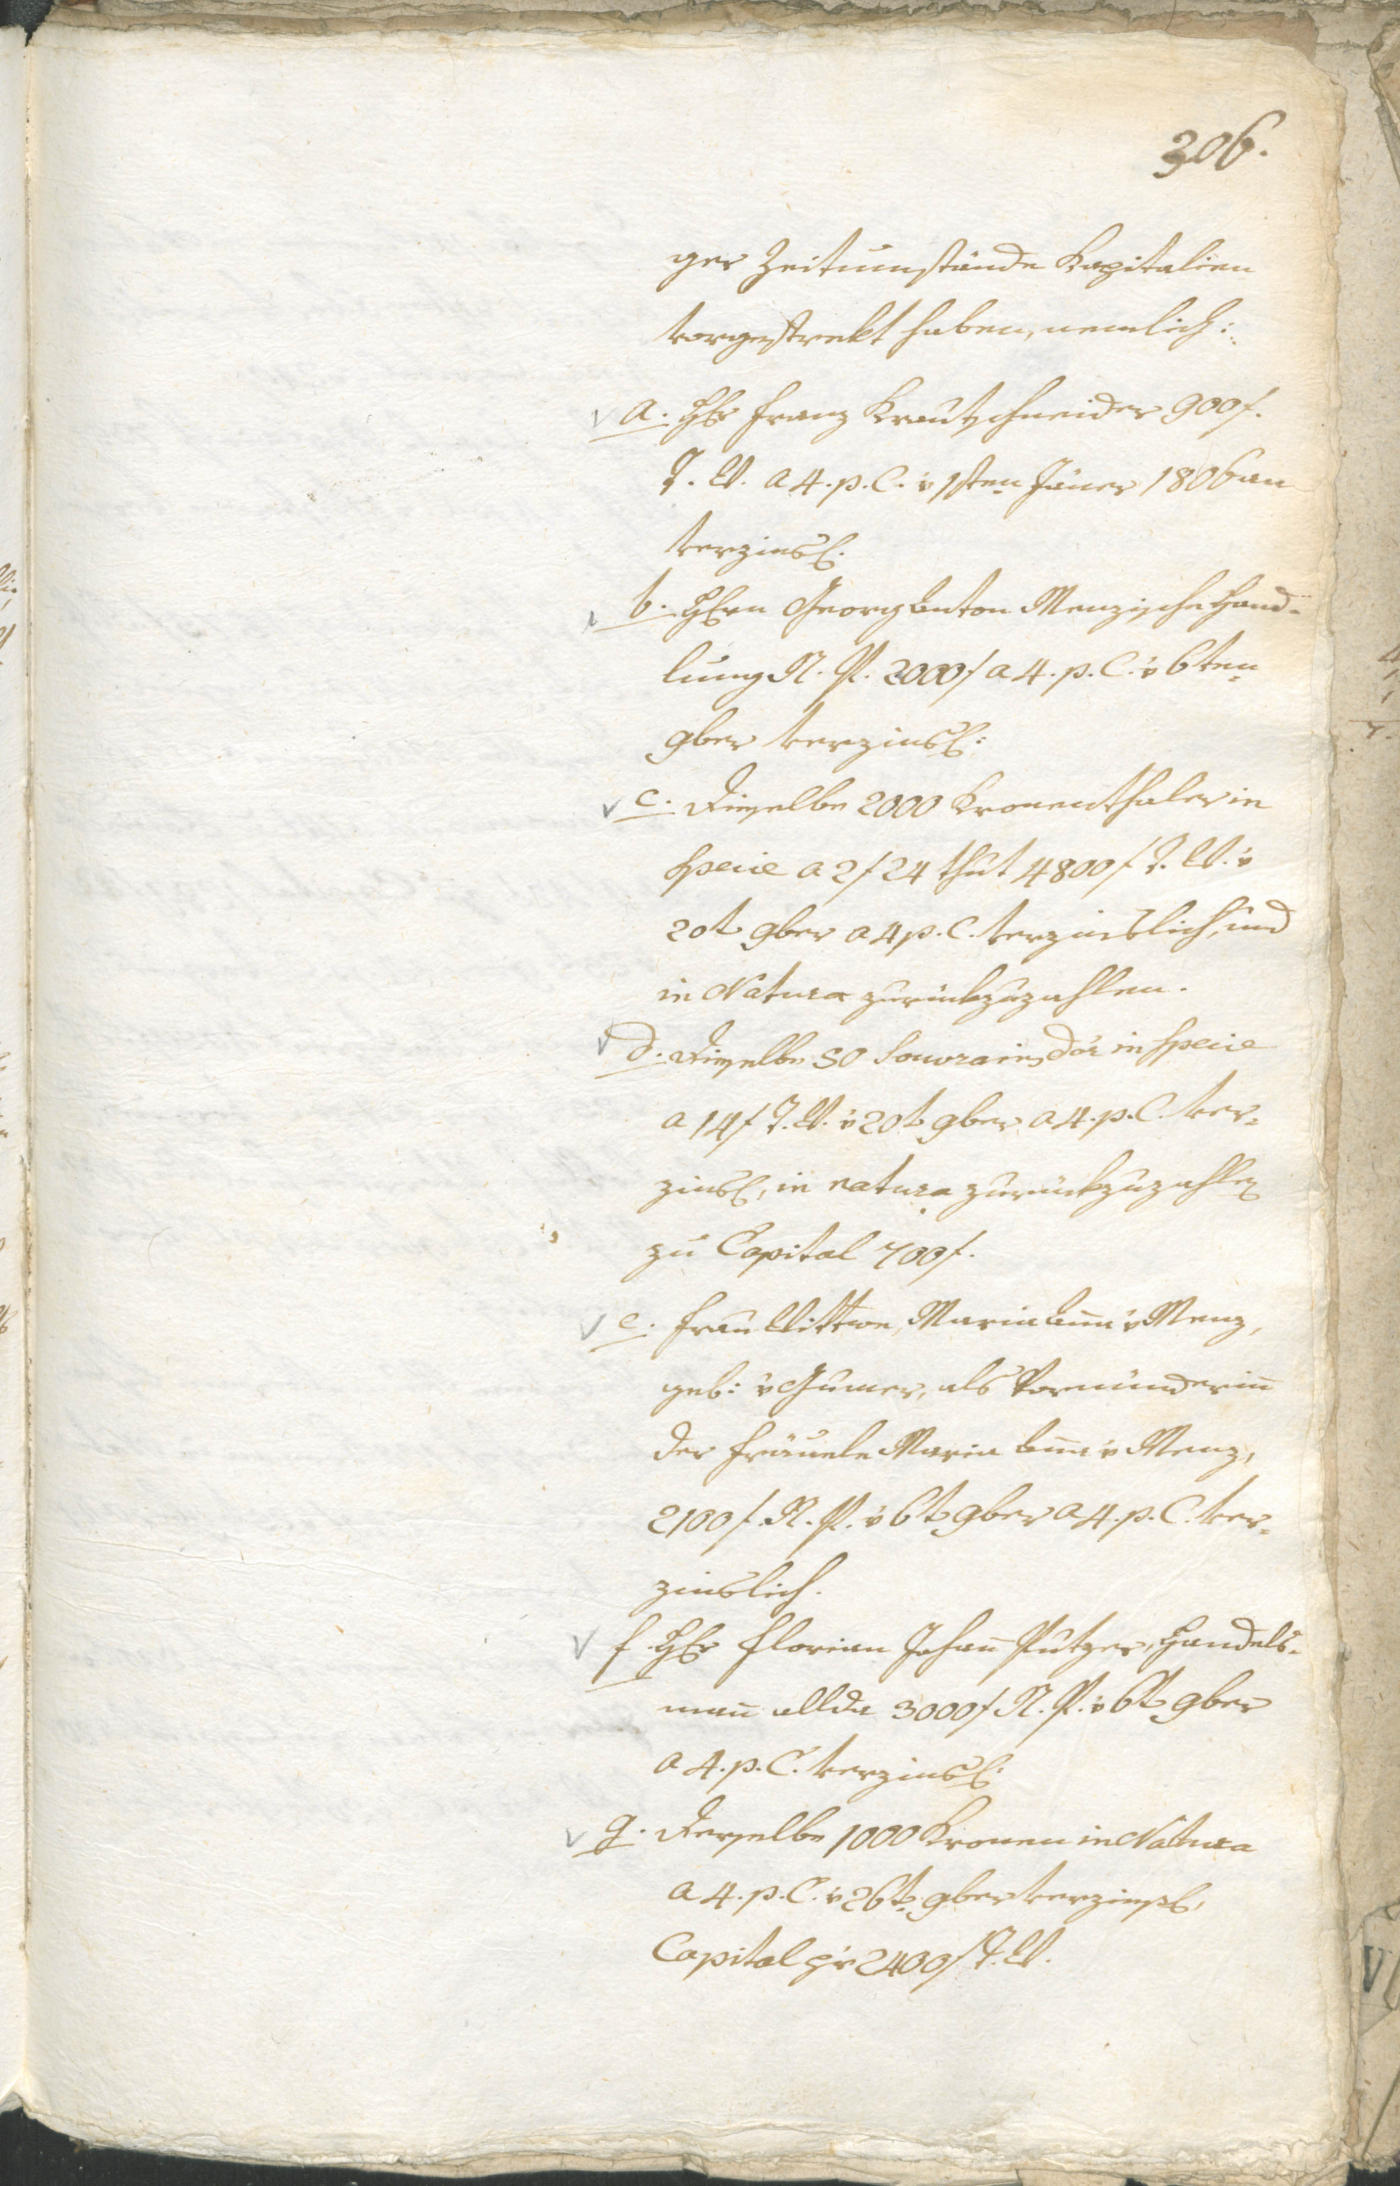 306.
ger Zeitumstände Kapitalien
vorgestrekt haben, nemlich:
a. Hr Franz Krautschneider 900 f.
T. W. a 4. p. C. v 1sten Jäner 1806 an
verzinsl.
b. Hrn Georg Anton Menzische Hand-
lung R. W. 2000 f a 4. p. C. v 6ten
9ber verzinsl:
c. Dieselbe 2000 Kronenthaler in
Specie a 2 f 24 thut 4800 f T. W. v
20t 9ber a 4 p. C. verzinslich, und
in Natura zurückzuzahlen.
d. Dieselbe 50 Souvrains dór in Specie
a 14 f T. W. v 20t 9ber a 4. p. C. ver-
zinsl, in natura zurückzuzahlen
zu Capital 700 f.
e. Frau Wittwe, Maria Ana v Menz,
geb: v Gumer, als Vormünderin
der Fräule Maria Ana v Menz,
2100 f. R. W. v 6t 9ber a 4. p. C. ver-
zinslich.
f. Hr Florian Johan Putzer, Handels-
man allda 3000 f R. W. v 6t 9ber
a 4. p. C. verzinsl:
g. Derselbe 1000 Kronen in Natura
a 4. p. C. v 26t 9ber verzinsl,
Capital pr 2400 f T. W.